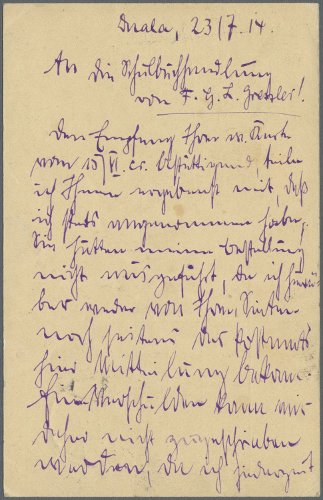 Duala, 23/7. 14.
An die Schulbuchhandlung
von F. G. L. Gressler!
Den Empfang Ihrer w. Karte
vom 15/VI. cr. bestättigend, teile
ich Ihnen ergebenst mit, daß
ich stets angenommen habe,
Sie hätten meine Bestellung
nicht ausgeführt, da ich hierü-
ber weder von Ihren Seiten
noch seitens des Postamts
hier Mitteilung bekam.
Ein Verschulden kann mir
daher nicht zugeschrieben
werden, da ich jederzeit